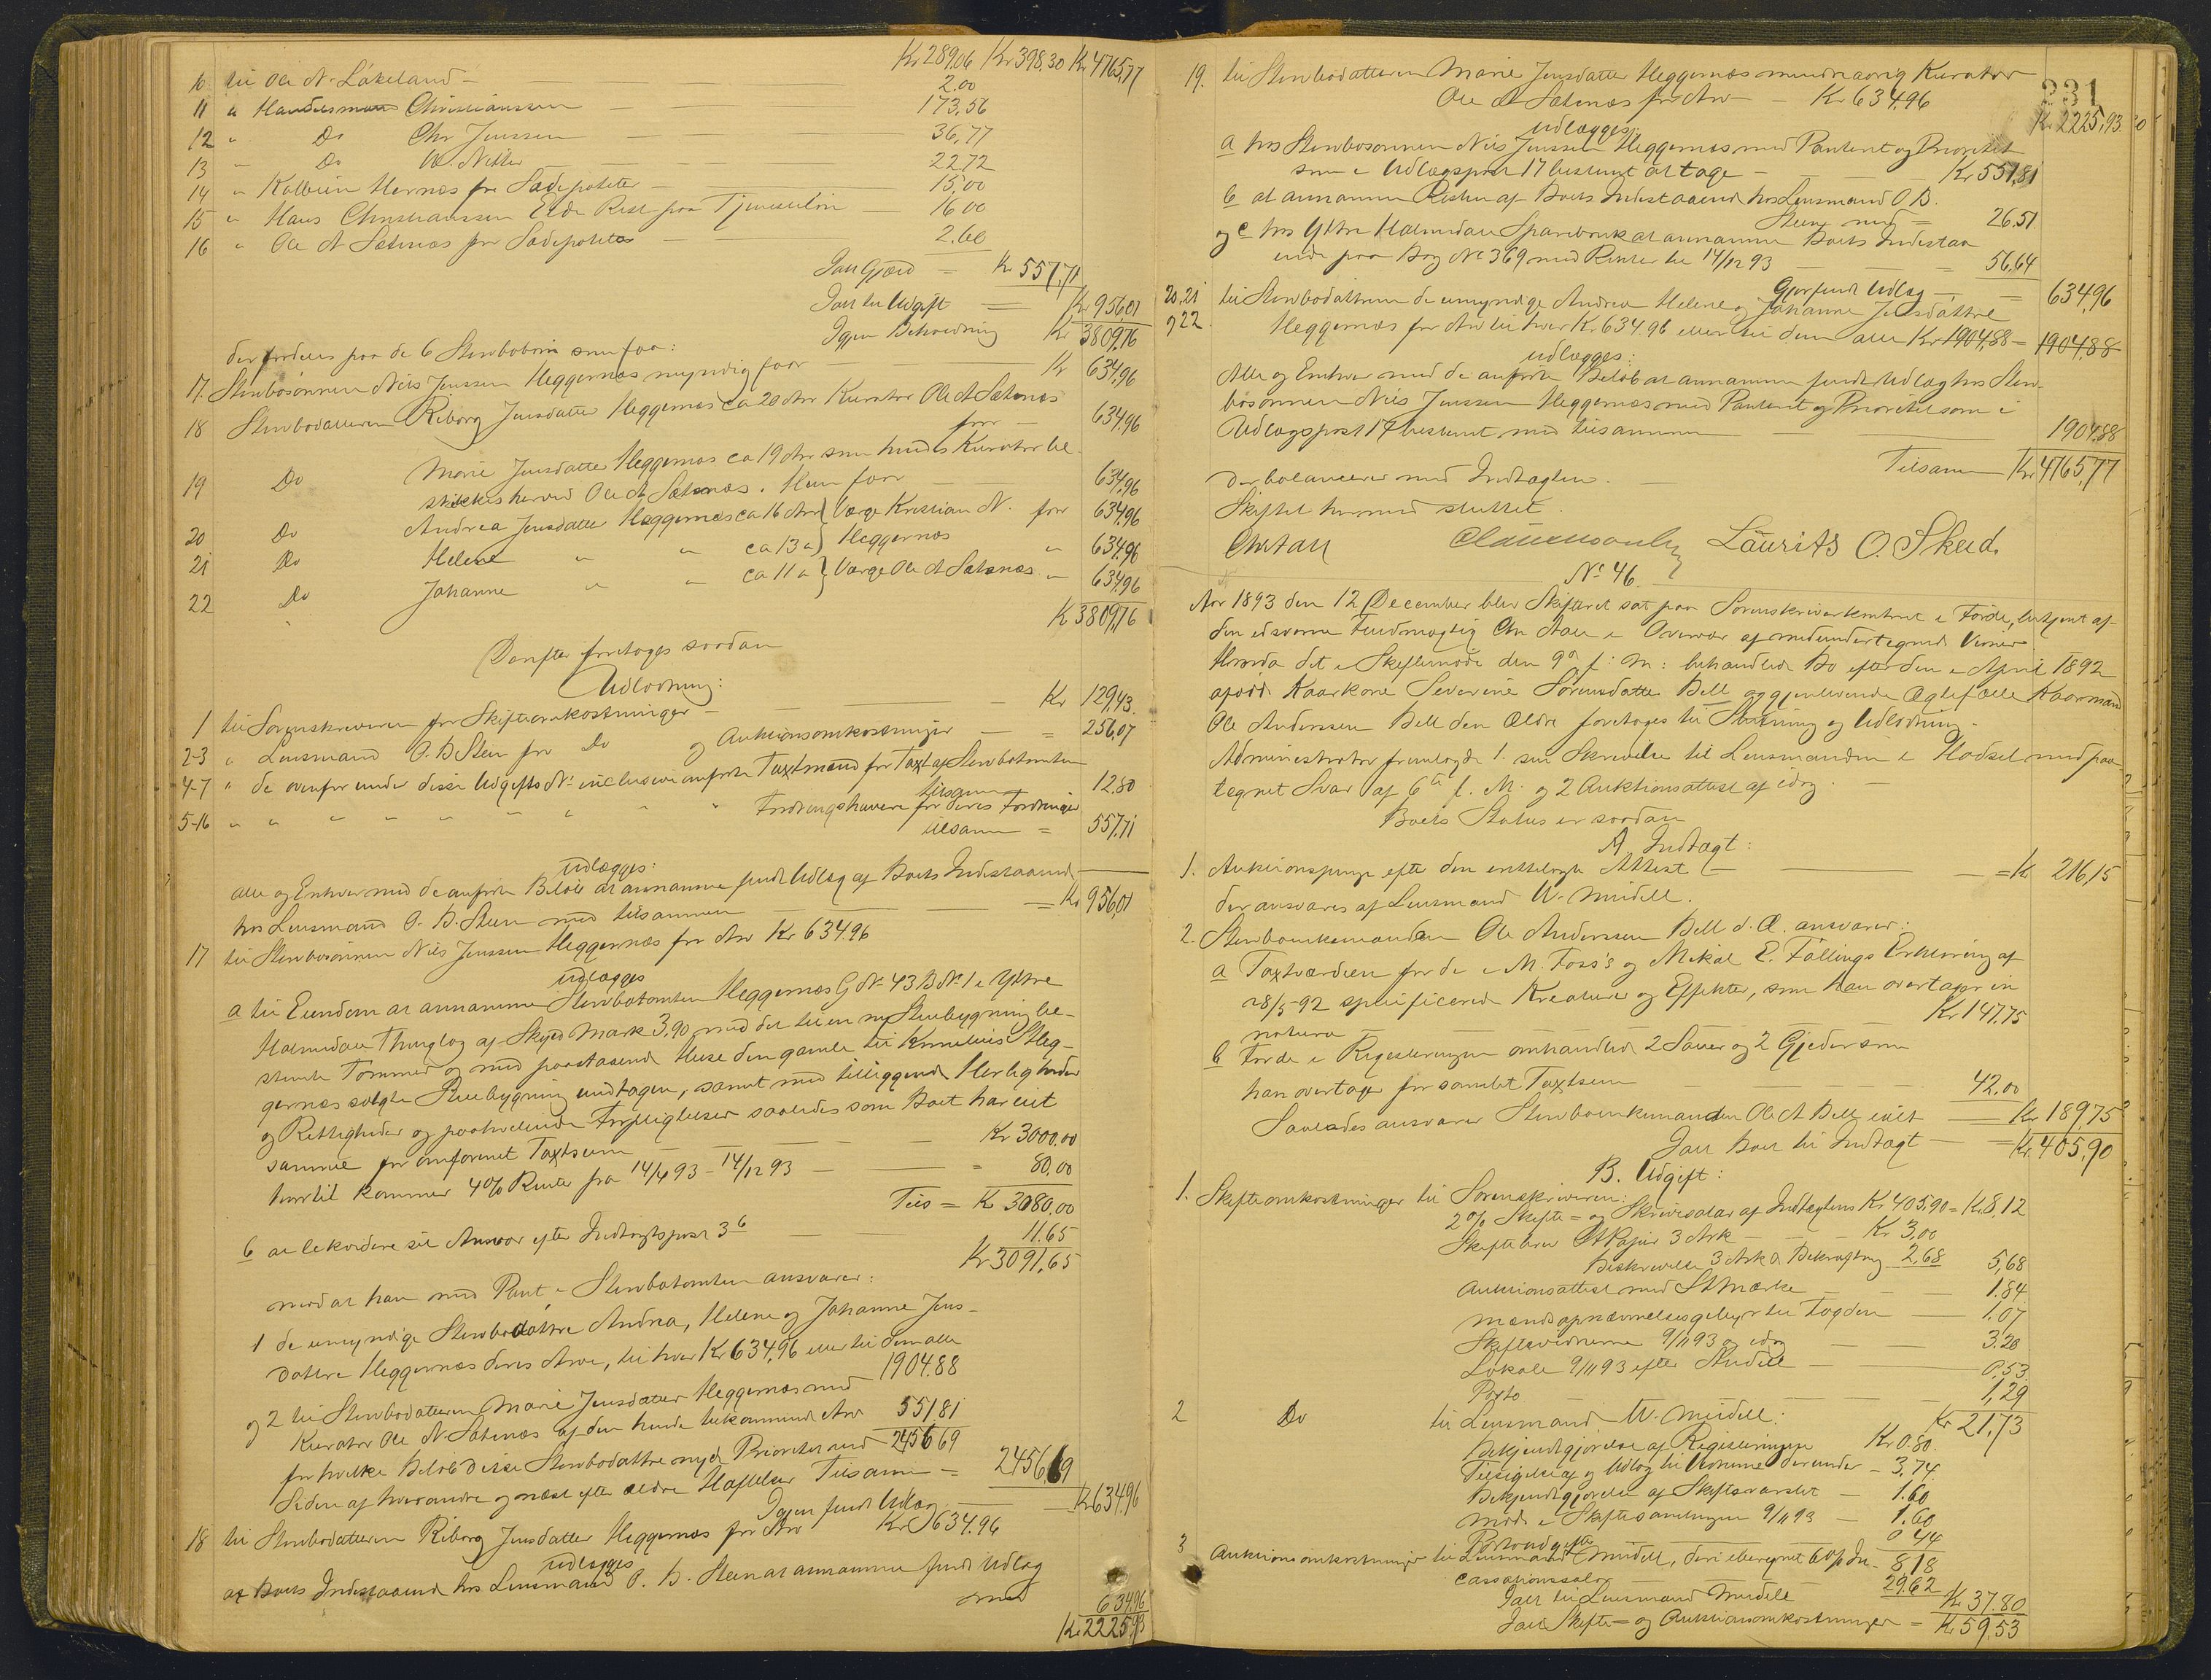 Kr 289,06 Kr 398.30 Kr 4765,77
10 til Ole N. Lökeland — 2.00
11 " Handelsmand Christianssen — 173,56
12 " Do Chr Jenssen — 36,77
13 " Do W. Nitter — 22,72
14 " Kolbein Hernæs for Sædepoteter — 15,00
15 " Hans Christianssen Eide Rest paa Tjenestelön — 16.00
16 " Ole A Sætenæs for Sædepoteter — 2.66
Ialt Gjæld = Kr 557,71
Ialt til Udgift = Kr 956,01
Igjen Beholdning Kr 3809,76
der fordeles paa de 6 Stervbobörn som faa:
17. Stervbosönnen Nils Jenssen Heggernæs myndig faar — Kr 634,96
18 Stervbodatteren Riborg Jensdatter Heggernæs ca 20 Aar Kurator Ole A Sætenæs
faar — 634,96
19 Do Marie Jensdatter Heggernæs ca 19 Aar som hendes Kurator be-
skikkes herved Ole A Sætenæs. Hun faar — 634,96
20 Do Andrea Jensdatter Heggernæs ca 16 Aar Værge Kristian N. faar 634,96
Heggernæs
21 Do Helene " " ca 13 a " 634,96
22 Do Johanne " " ca 11 a Værge Ole A Sætenæs " 634,96
Kr 3809,76
Derefter foretages saadan
Udlodning:
1 til Sorenskriveren for Skifteomkostninger — Kr 129,43.
2-3 " Lensmand O. B. Steen for Do og Auktionsomkostninger — = 256,07
4-7 " de ovenfor under disse Udgifts No inclusive anförte Taxtmænd for Taxt af Stervbotomten
tilsammen 12.80
5-16 " " " " " " " Fordringshavere for deres Fordringer
tilsamm = 557.71
udlægges:
alle og Enhver med de anförte Belöb at annamme fuldt Udlæg af Boets Indestaaende
hos Lensmand O. B. Steen med tilsammen — = Kr 956,01
17 til Stervbosönnen Nils Jenssen Heggernæs for Arv Kr 634.96
udlægges
a til Eiendom at annamme Stervbotomten Heggernæs G No 43 B No 1 i Ytre
Holmedal Thinglag af Skyld Mark 3,90 med det til en ny Stuebygning be-
stemte Tömmer og med paastaaende Huse den gamle til Kornelius Heg-
gernæs solgte Stuebygning undtagen, samt med tilliggende Herligheder
og Rettigheder og paahvilende Forpligtelser saaledes som Boet har eiet
samme for omforenet Taxtsum — Kr 3000.00
hvortil kommer 4% Rente fra 14/4 93 – 14/12 93 — = 80,00
Tils = Kr 3080,00
b at likvidere sit Ansvar efter Indtægtspost 3 b — 11.65
Kr 3091,65
mod at han med Pant i Stervbotomten ansvarer:
1 de umyndige Stervbodöttre Andrea, Helene og Johanne Jens-
döttre Heggernæs deres Arve, til hver Kr 634,96 eller til dem alle
1904.88
og 2 til Stervbodatteren Marie Jensdatter Heggernæs med
Kurator Ole A. Sætenæs af den hende tilkommende Arv 551.81
for hvilke Belöb disse Stervbodöttre nyde Prioritet ved 2456.69
Siden af hverandre og næst efter ældre Heftelser Tilsamm = 2456.69
Igjen fuldt Udlæg — = Kr 634,96
18 til Stervbodatteren Riborg Jensdatter Heggernæs for Arv Kr 634.96
udlægges
af Boets Indestaaende hos Lensmand O. B. Steen at annamme fuldt Udlæg
med 634,96
Kr 2225,93
231
19. til Stervbodatteren Marie Jensdatter Heggernæs mindreaarig Kurator
Ole A Sætenæs for Arv — Kr 634,96
Kr 2225,93
udlægges:
a hos Stervbosönnen Nils Jenssen Heggernæs med Panteret og Prioritet
som i Udlægspost 17 bestemt at tage — Kr 551,81
b at annamme Resten af Boets Indestaaende hos Lensmand O. B.
Steen med = 26.51
og c hos Ytre Holmedals Sparebank at annamme Boets Indestaa-
ende paa Bog No 369 med Renter til 14/12 93 — = 56,64
Gjör fuldt Udlæg — = 634,96
20,21 til Stervbodöttrene de umyndige Andrea Helene og Johanne Jensdöttre
og 22 Heggernæs for Arv til hver Kr 634,96 eller til dem alle Kr 1904,88 = 1904,88
udlægges:
Alle og Enhver med de anförte Belöb at annamme fuldt Udlæg hos Sterv-
bosönnen Nils Jenssen Heggernæs med Panteret og Prioritet som i
Udlægspost 17 bestemt med tilsammen — 1904.88
Tilsamm Kr 4765,77
der balancerer med Indtægten. —
Skiftet hermed sluttet.
Chr Aall Laurits O. Skeid.
No 46.
Aar 1893 den 12 December blev Skifteret sat paa Sorenskriverkontoret i Förde, betjent af
den edsvorne Fuldmægtig Chr Aall i Overvær af medundertegnede Vidner
Hvorda det i Skiftemöde den 9de f: M: behandlede Bo efter den i April 1892
afdöde Kaarkone Severine Sörensdatter Bell og gjenlevende Ægtefælle Kaarmand
Ole Anderssen Bell den Ældre foretages til Slutning og Udlodning. —
Administrator fremlagde 1. sin Skrivelse til Lensmanden i Hodset med paa-
tegnet Svar af 6te f. M. og 2 Auktionsattest af idag
Boets Status er saadan
A Indtægt:
1. Auktionspenge efter den omtalte Attest — = Kr 216,15
der ansvares af Lensmand W. Meidell.
2. Stervboenkemanden Ole Anderssen Bell d. Æ. ansvarer:
a Taxtværdien for de i M. Foss's og Mikal E. Fällings Erklæring af
28/5 92 specificerede Kreature og Effekter, som han overtager in
natura — Kr 147,75
b For de i Registreringen omhandlede 2 Sauer og 2 Gjeder som
han overtager for samlet Taxtsum — 42.00
Saaledes ansvarer Stervboenkemanden Ole A Bell ialt — Kr 189,75
Ialt Boet til Indtægt — = Kr. 405,90
B. Udgift:
1. Skifteomkostninger til Sorenskriveren:
2% Skifte= og Skriversalær af Indtægtens Kr 405,90 = Kr. 8,12
Skiftebrev St Papir 3 Ark — Kr 3,00
Beskrivelse 3 Ark & Bekræftng 2,68 5,68
Auktionsattest med St Mærke — 1.84
Mændsopnævnelsesgebyr til Fogden — 1.07
Skiftevidnerne 9/11 93 og idag — 3.20
Lokale 9/11 93 efter Andell — 0,53
Porto — 1,29
Kr 21,73
2 Do til Lensmand W. Meidell:
Bekjendtgjörelse af Registreringen Kr 0.80.
Tilsigelse af og Udlæg til Vidnerne derunder – 3,74.
Bekjendtgjörelse af Skiftevarslet — 1.60
Möde i Skiftesamlingen 9/11 93 — 1.60
Portoudgifter 0 44
3 Auktionsomkostninger til Lensmand Meidell, deri iberegnet 6% In- 8,18
cassationssalær 29,62
Ialt til Lensmand Meidell — Kr 37.80
Ialt Skifte= og Auktionsomkostninger = Kr 59,53